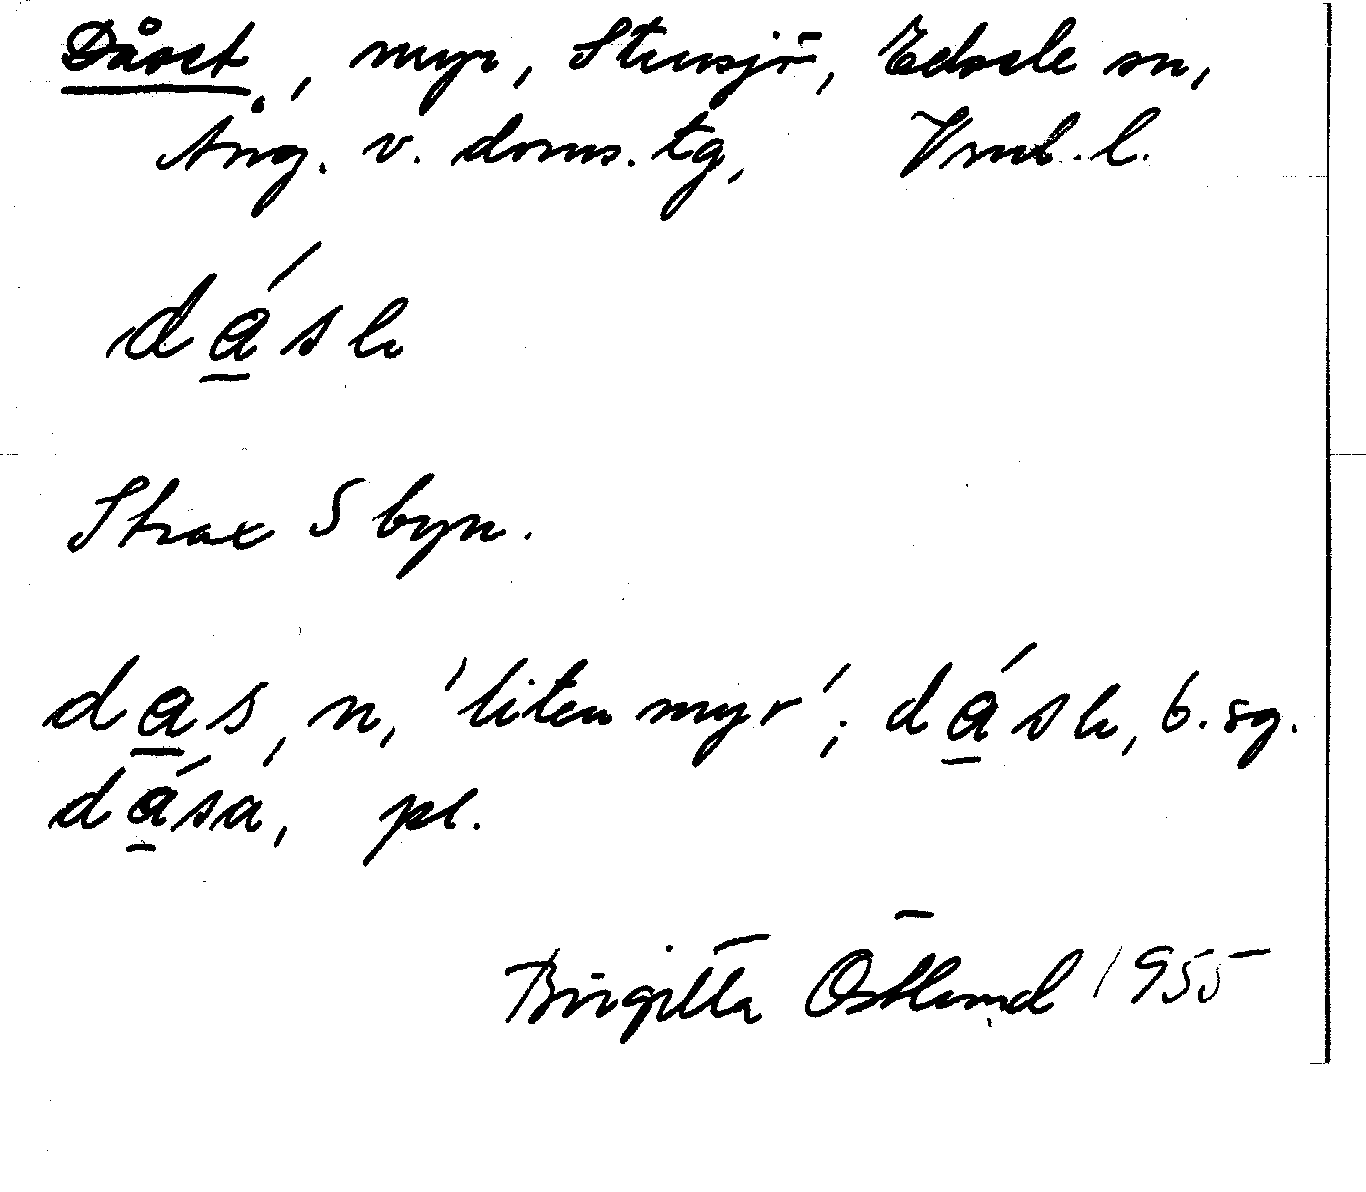 Dåset, myr, Stensjö, Edsele sn,
Ång. v. doms. tg, Vnl. l.
dása
Strax S byn.
das, n, 'liten myr'; dása, b. sg.
dása, pl.
Birgitta Östlund 1955